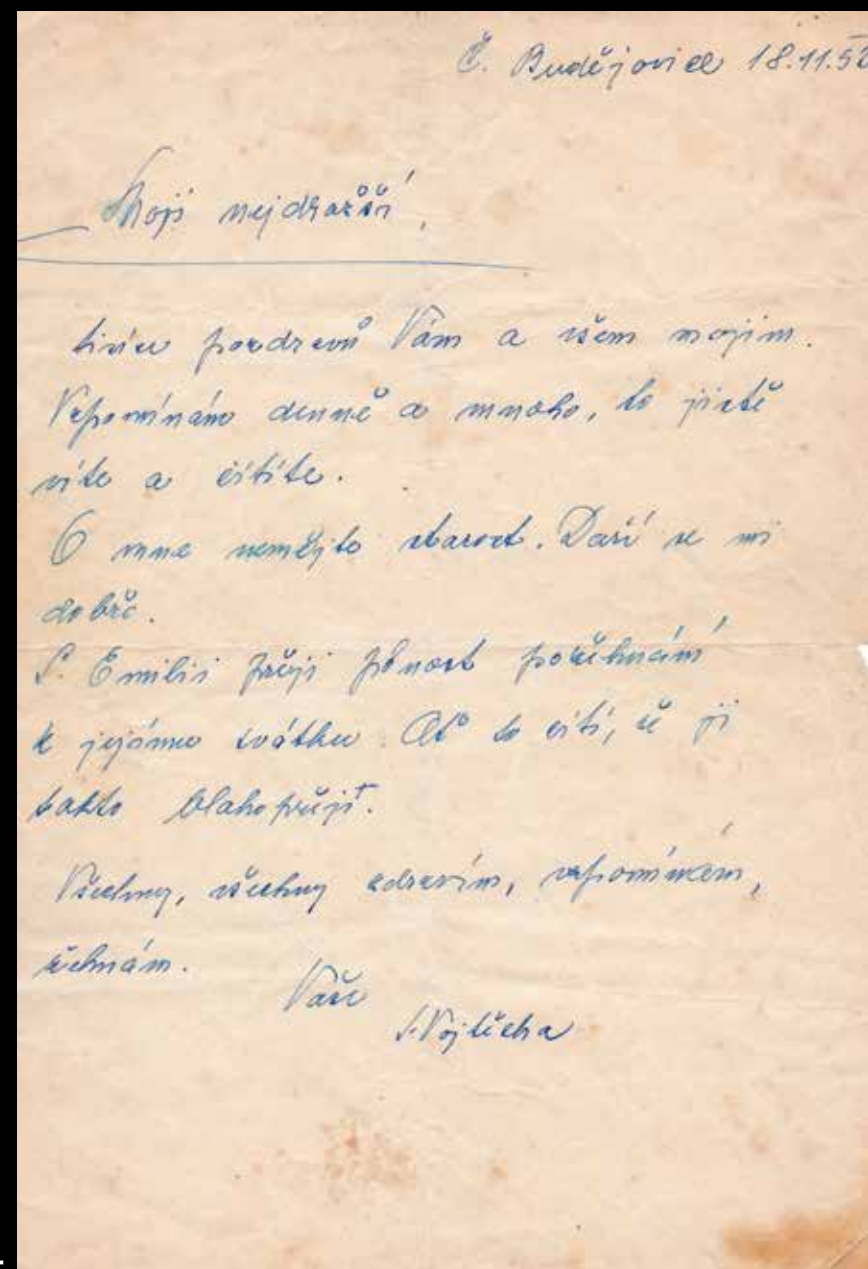 Č. Budějovice 18.11.52
Moji nejdražší,
tisíce pozdravů Vám a všem mojim.
Vzpomínám denně a mnoho, to jistě
víte a cítíte.
O mne nemějte starost. Daří se mi
dobře.
S. Emilii přeji plnost požehnání
k jejímu svátku. Ať to cítí, že jí
takto blahopřeji+.
Všechny, všechny zdravím, vzpomínám,
žehnám.
Vaše
S. Vojtěcha